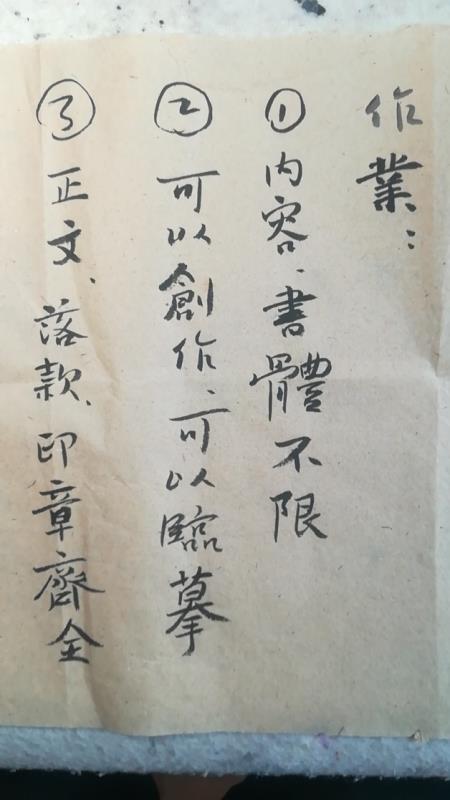 作業：
①内容、書體不限
②可以創作、可以臨摹
③正文、落款、印章齊全